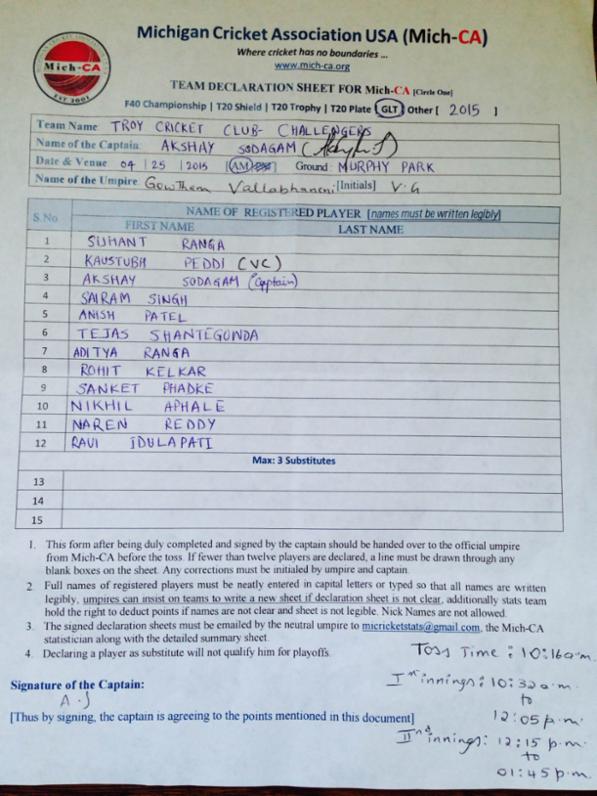 Michigan Cricket Association USA (Mich-CA)
Mich-CA
EST 2001
Where cricket has no boundaries ...
www.mich-ca.org
TEAM DECLARATION SHEET FOR Mich-CA [Circle One]
F40 Championship | T20 Shield | T20 Trophy | T20 Plate | GLT | Other [ 2015 ]
Team Name: TROY CRICKET CLUB- CHALLENGERS
Name of the Captain: AKSHAY SODAGAM
Date & Venue 04 / 25 / 2015 [AM] Ground: MURPHY PARK
Name of the Umpire Gowtham Vallabhaneni [Initials] V.G
S.No NAME OF REGISTERED PLAYER [names must be written legibly]
FIRST NAME LAST NAME
1 SUMANT RANGA
2 KAUSTUBH PEDDI (VC)
3 AKSHAY SODAGAM (Captain)
4 SAIRAM SINGH
5 ANISH PATEL
6 TEJAS SHANTEGONDA
7 ADITYA RANGA
8 ROHIT KELKAR
9 SANKET PHADKE
10 NIKHIL APHALE
11 NAREN REDDY
12 RAVI IDULAPATI
Max: 3 Substitutes
13
14
15
1. This form after being duly completed and signed by the captain should be handed over to the official umpire
from Mich-CA before the toss. If fewer than twelve players are declared, a line must be drawn through any
blank boxes on the sheet. Any corrections must be initialed by umpire and captain.
2. Full names of registered players must be neatly entered in capital letters or typed so that all names are written
legibly, umpires can insist on teams to write a new sheet if declaration sheet is not clear, additionally stats team
hold the right to deduct points if names are not clear and sheet is not legible. Nick Names are not allowed.
3. The signed declaration sheets must be emailed by the neutral umpire to micricketstats@gmail.com, the Mich-CA
statistician along with the detailed summary sheet.
4. Declaring a player as substitute will not qualify him for playoffs.
Toss Time : 10:16 a.m.
Signature of the Captain:
A.S
[Thus by signing, the captain is agreeing to the points mentioned in this document]
Ist innings: 10:32 a.m.
to
12:05 p.m.
IInd innings: 12:15 p.m.
to
01:45 p.m.